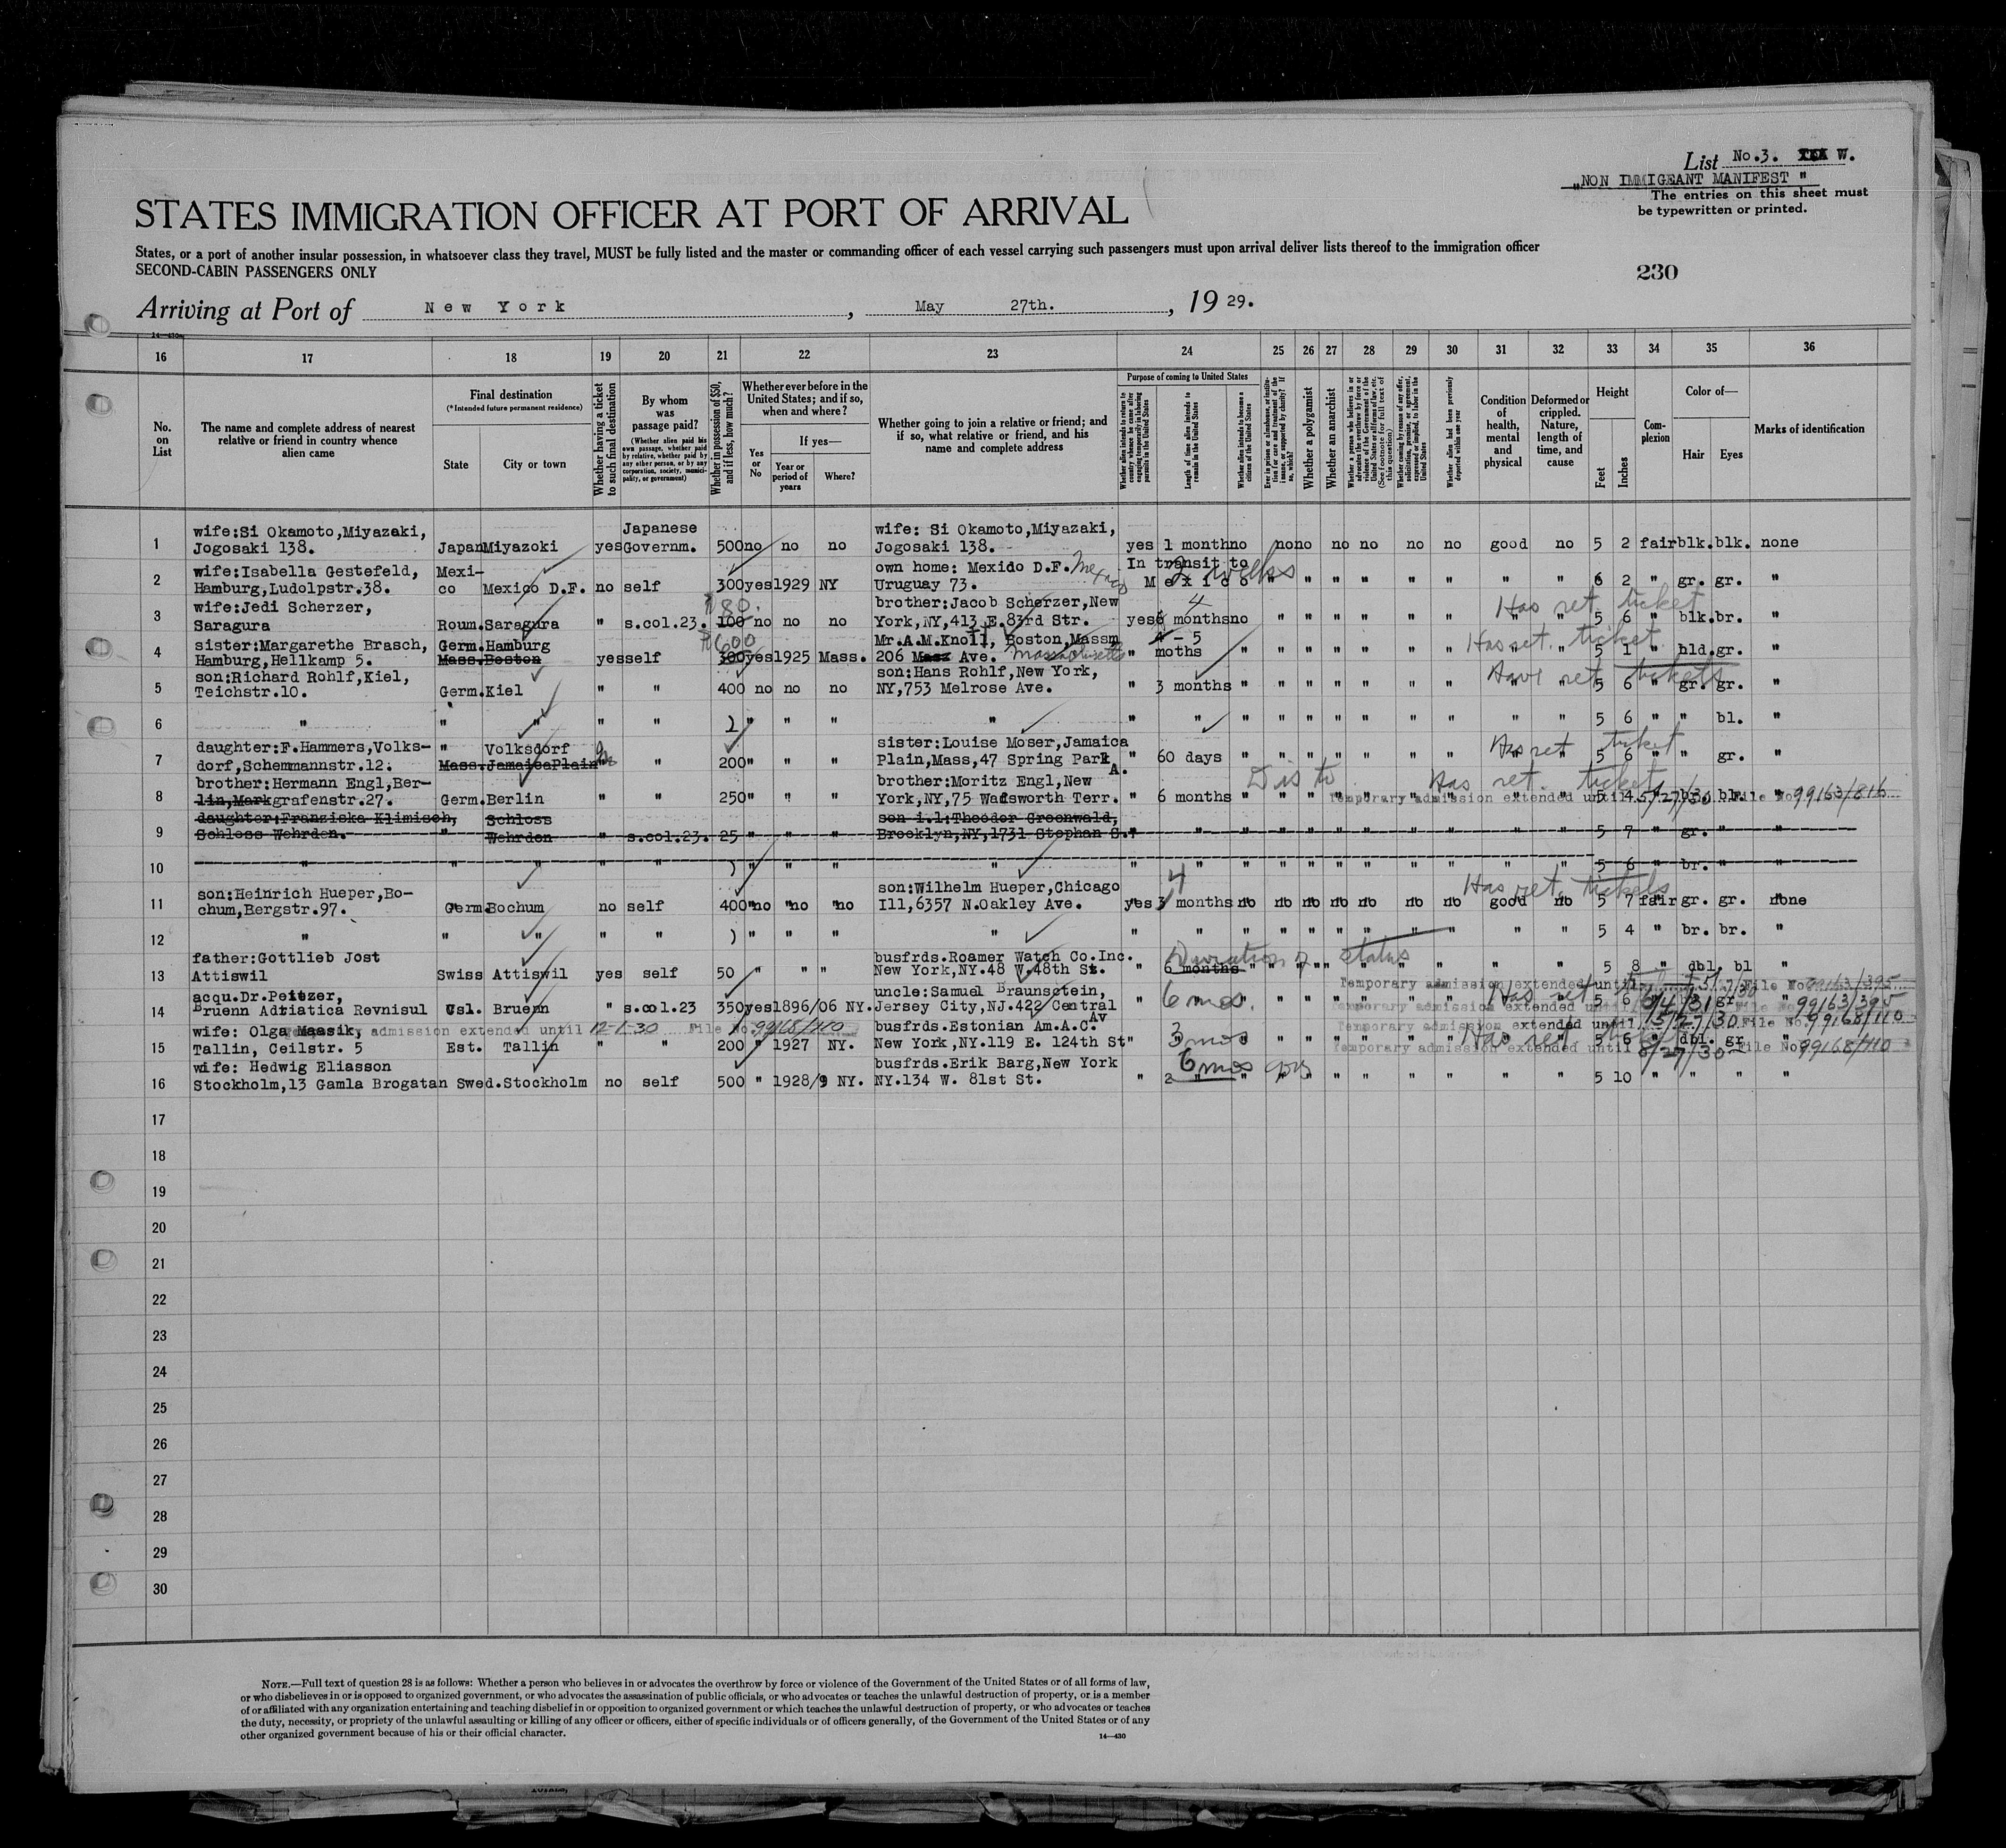 List No.3. W.
"NON IMMIGEANT MANIFEST "
The entries on this sheet must
be typewritten or printed.
STATES IMMIGRATION OFFICER AT PORT OF ARRIVAL
States, or a port of another insular possession, in whatsoever class they travel, MUST be fully listed and the master or commanding officer of each vessel carrying such passengers must upon arrival deliver lists thereof to the immigration officer
SECOND-CABIN PASSENGERS ONLY
230
Arriving at Port of New York, May 27th., 19 29.
14—430
16 17 18 19 20 21 22 23 24 25 26 27 28 29 30 31 32 33 34 35 36
No. on List
The name and complete address of nearest relative or friend in country whence alien came
Final destination
(*Intended future permanent residence)
State City or town
Whether having a ticket to such final destination
By whom was passage paid?
(Whether alien paid his own passage, whether paid by relative, whether paid by any other person, or by any corporation, society, municipality, or government)
Whether in possession of $50, and if less, how much?
Whether ever before in the United States; and if so, when and where?
Yes or No
If yes—
Year or period of years
Where?
Whether going to join a relative or friend; and if so, what relative or friend, and his name and complete address
Purpose of coming to United States
Whether alien intends to return to country whence he came after engaging temporarily in laboring pursuits in the United States
Length of time alien intends to remain in the United States
Whether alien intends to become a citizen of the United States
Ever in prison or almshouse, or institution for care and treatment of the insane, or supported by charity? If so, which?
Whether a polygamist
Whether an anarchist
Whether a person who believes in or advocates the overthrow by force or violence of the Government of the United States or all forms of law, etc. (See footnote for full text of this question)
Whether coming by reason of any offer, solicitation, promise, or agreement, expressed or implied, to labor in the United States
Whether alien had been previously deported within one year
Condition of health, mental and physical
Deformed or crippled. Nature, length of time, and cause
Height
Feet Inches
Complexion
Color of—
Hair Eyes
Marks of identification
wife:Si Okamoto,Miyazaki, Japanese wife: Si Okamoto,Miyazaki,
1 Jogosaki 138. Japan Miyazoki yes Governm. 500 no no no Jogosaki 138. yes 1 month no no no no no no no good no 5 2 fair blk. blk. none
wife:Isabella Gestefeld, Mexi- own home: Mexido D.F. Mexico In transit to 2 weeks
2 Hamburg,Ludolpstr.38. co Mexico D.F. no self 300 yes 1929 NY Uruguay 73. Mexico " " " " " " " " 6 2 " gr. gr. "
wife:Jedi Scherzer, 80. brother:Jacob Scherzer,New 4 Has ret ticket
3 Saragura Roum. Saragura " s.col.23. 100 no no no York,NY,413 E.83rd Str. yes 6 months no " " " " " " " " 5 6 " blk. br. "
sister:Margarethe Brasch, Germ. Hamburg 600 Mr.A.M.Knoll, Boston,Massm 4 - 5 Has ret. ticket
4 Hamburg,Hellkamp 5. Mass. Boston yes self 300 yes 1925 Mass. 206 Ave. Massachusetts " moths " " " " " " " " " 5 1 " bld. gr. "
son:Richard Rohlf,Kiel, son:Hans Rohlf,New York, Have ret tickets
5 Teichstr.10. Germ. Kiel " " 400 no no no NY,753 Melrose Ave. " 3 months " " " " " " " " " 5 6 " gr. gr. "
6 " " " " " ) " " " " " " " " " " " " " " " 5 6 " " bl. "
daughter:F.Hammers,Volks- " Volksdorf sister:Louise Moser,Jamaica Has ret ticket
7 dorf,Schemmannstr.12. Mass. JamaicaPlain " " 200 " " " Plain,Mass,47 Spring Park A. " 60 days " " " " " " " " " 5 6 " " gr. "
brother:Hermann Engl,Ber- brother:Moritz Engl,New Has ret. ticket
8 lin,Markgrafenstr.27. Germ. Berlin " " 250 " " " York,NY,75 Wadsworth Terr. " 6 months " Temporary admission extended until 5/27/30 File No. 99163/816 5 4 " bl. bl. "
daughter:Franziska Klimisch, Schloss son i.l:Theodor Greenwald,
9 Schloss Wehrden. " Wehrden " s.col.23. 25 " " " Brooklyn,NY,1731 Stephan S. " " " " " " " " " " " 5 7 " gr. " "
10 " " " " " ) " " " " " " " " " " " " " " " 5 6 " br. " "
son:Heinrich Hueper,Bo- son:Wilhelm Hueper,Chicago 4 Has ret. tickets
11 chum,Bergstr.97. Germ. Bochum no self 400 no no no Ill,6357 N.Oakley Ave. yes 3 months no no no no no no no good no 5 7 fair gr. gr. none
12 " " " " " ) " " " " " " " " " " " " " " " 5 4 " br. br. "
father:Gottlieb Jost busfrds.Roamer Watch Co.Inc. Duration of status
13 Attiswil Swiss Attiswil yes self 50 " " " New York,NY.48 W.48th St. " 6 months " " " " " " " " " 5 8 " dbl. bl "
Temporary admission extended until 5/27/30 File No. 99163/395
acqu.Dr.Peitzer, uncle:Samuel Braunstein, Has ret
14 Bruenn Adriatica Revnisul Csl. Bruenn " s.col.23 350 yes 1896/06 NY. Jersey City,NJ.422 Central Av " 6 mos. " " " " " " 5 6 gr "
Temporary admission extended until File No. 99163/395
wife: Olga Maasik, admission extended until 12-1-30 File No. 99168/110 busfrds.Estonian Am.A.C. Temporary admission extended until 5/27/30 File No. 99168/110
15 Tallin, Ceilstr. 5 Est. Tallin " " 200 " 1927 NY. New York,NY.119 E. 124th St " 3 mos " " " " " " " Has ret 5 6 " dbl. gr "
Temporary admission extended until 8/27/30 File No. 99168/110
wife: Hedwig Eliasson busfrds.Erik Barg,New York 6 mos
16 Stockholm,13 Gamla Brogatan Swed. Stockholm no self 500 " 1928/9 NY. NY.134 W. 81st St. " 2 " " " " " " " " " " 5 10 " " " "
17
18
19
20
21
22
23
24
25
26
27
28
29
30
NOTE.—Full text of question 28 is as follows: Whether a person who believes in or advocates the overthrow by force or violence of the Government of the United States or of all forms of law,
or who disbelieves in or is opposed to organized government, or who advocates the assassination of public officials, or who advocates or teaches the unlawful destruction of property, or is a member
of or affiliated with any organization entertaining and teaching disbelief in or opposition to organized government or which teaches the unlawful destruction of property, or who advocates or teaches
the duty, necessity, or propriety of the unlawful assaulting or killing of any officer or officers, either of specific individuals or of officers generally, of the Government of the United States or of any
other organized government because of his or their official character.
14—430